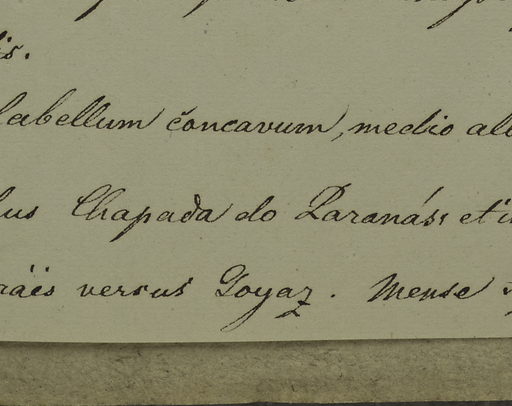 is.
labellum concavum, medio al
us Chapada do Paranás, et i
aës versus Goyaz. Mense